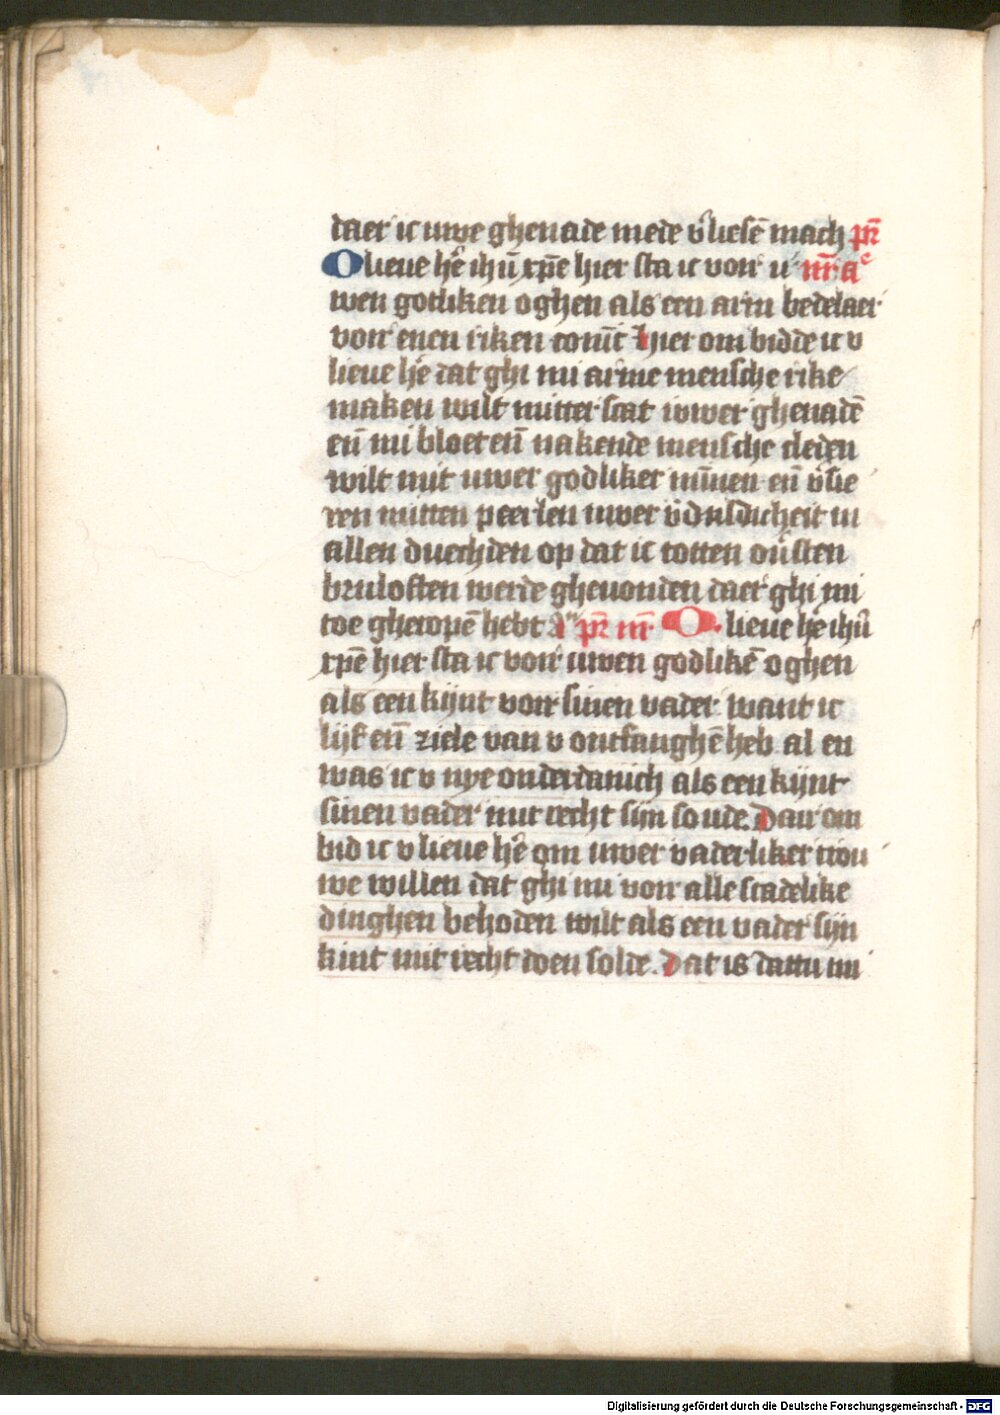 daer ic uwe ghenade mede v̉liesē mach pr̄
O lieue hē ihū xpē hier sta ic voir u nr̄ aͤ
wen godliken oghen als een arm bedelaer
voir enen riken comīt hier om bidde ic v
lieue hē dat ghi mi arme mensche rike
maken wilt mitter scat iwwer ghenadē
en̄ mi bloet en̄ nakende mensche cleden
wilt mit uwer godliker mīnen en̄ v̉sie
ren mitten peerlen uwer v̉duldicheit in
allen duechden op dat ic totten oủsten
brulosten werde gheuonden daer ghi mi
toe gheropē hebt a pr̄ nr̄ O lieue hē ihū
xpē hier sta ic voir uwen godlikē oghen
als een kijnt voir sinen vader want ic
lijf en̄ ziele van v ontfanghē heb al en
was ic v nye onderdanich als een kijnt
sinen vader mit recht sijn soude. Dair om
bid ic v lieue hē om uwer vaderliker trou
we willen dat ghi mi voir alle scadelike
dinghen behoden wilt als een vader sijn
kint mit recht doen solde. Dat is dattu mi
Digitalisierung gefördert durch die Deutsche Forschungsgemeinschaft - DFG